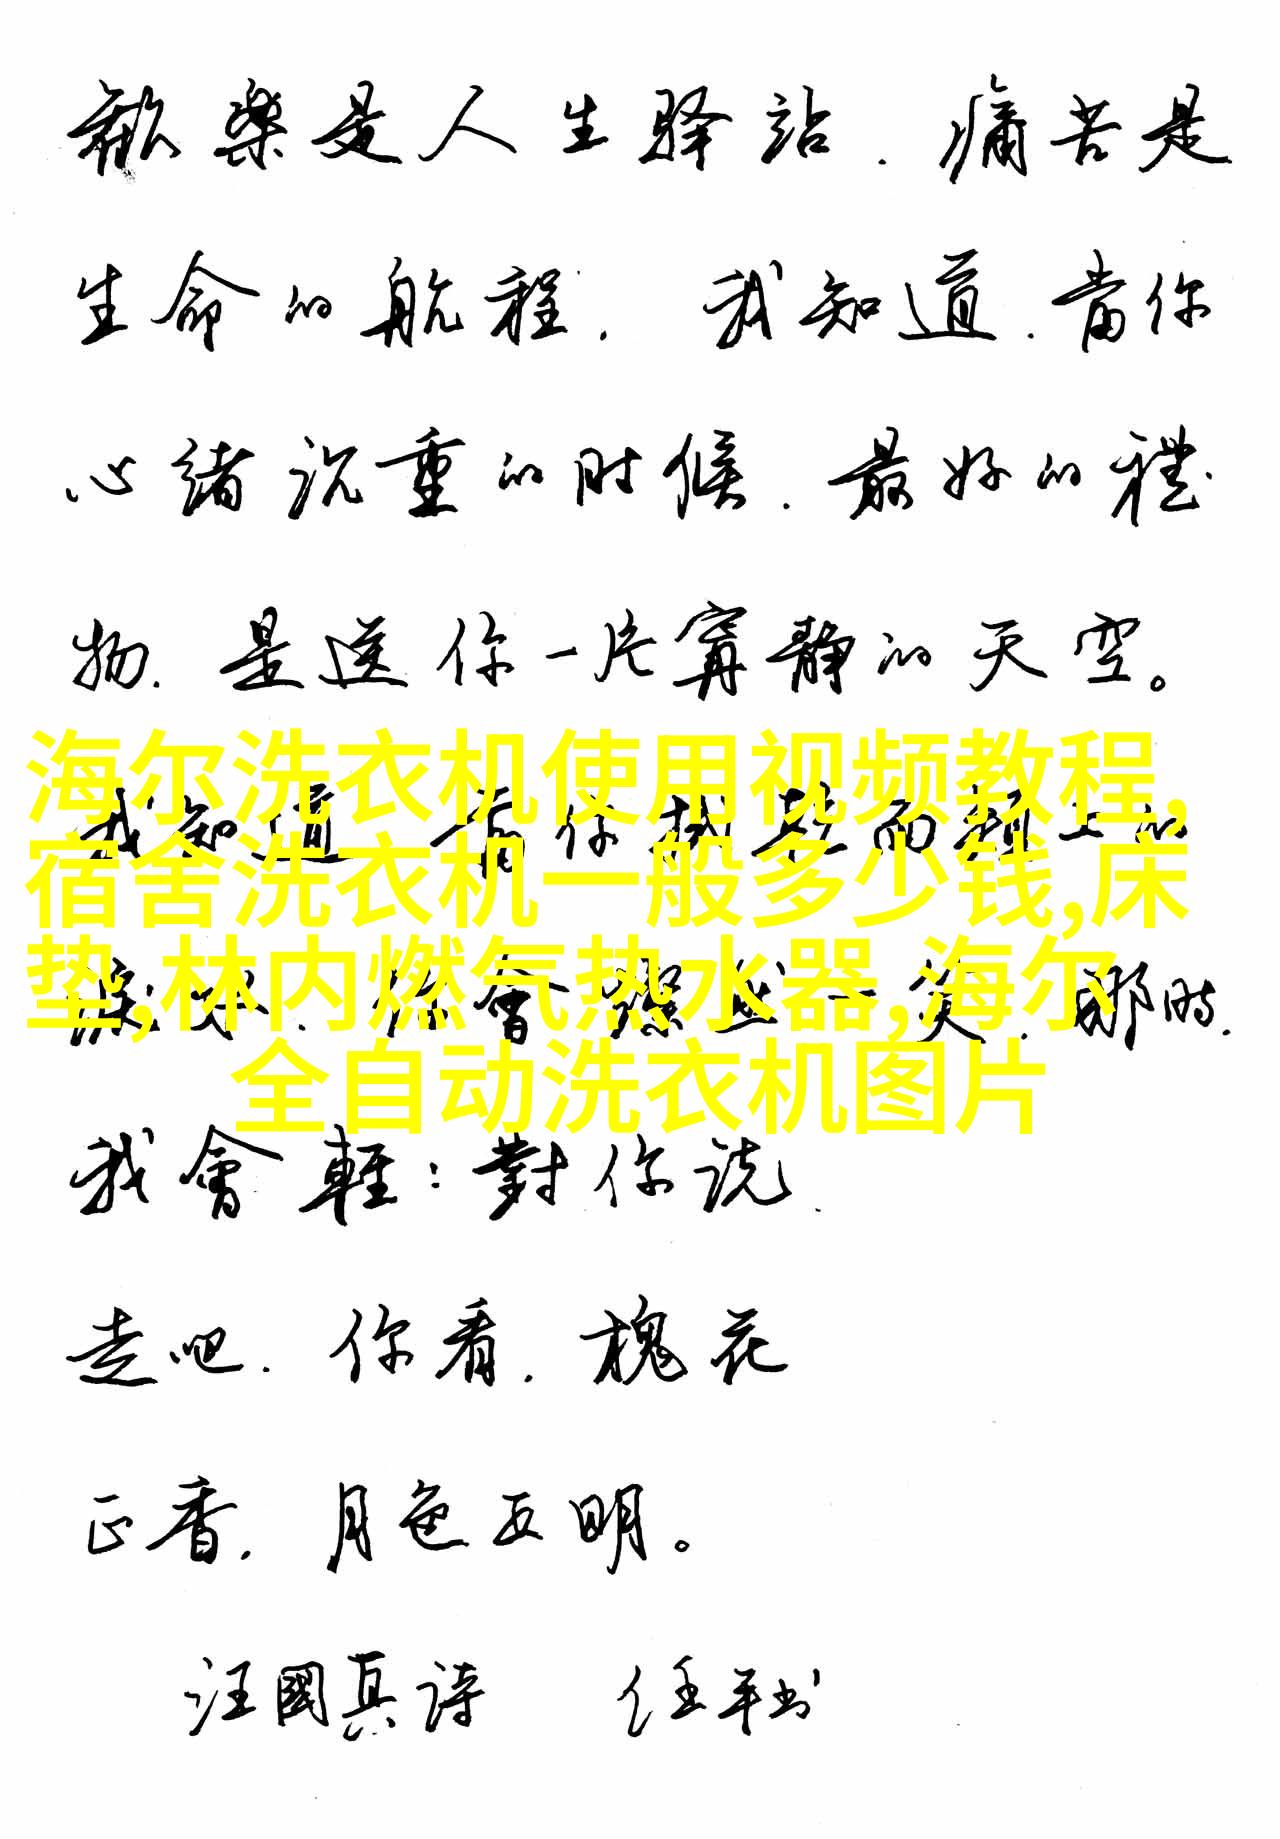 歡樂是人生驿站.痛苦是
生命的航程.我知道.當你
心緒沉重的时候.最好的禮
物.是送你一片寧静的天空。
海尔洗衣机使用视频教程,
我知道 你 而 上的
宿舍洗衣机一般多少钱,床
垫,林内燃气热水器,海尔
會 一笑.那時.
全自动洗衣机图片
我會輕:對你说.
走吧.你看.槐花
正香.月色正明。
汪國真诗 任平书